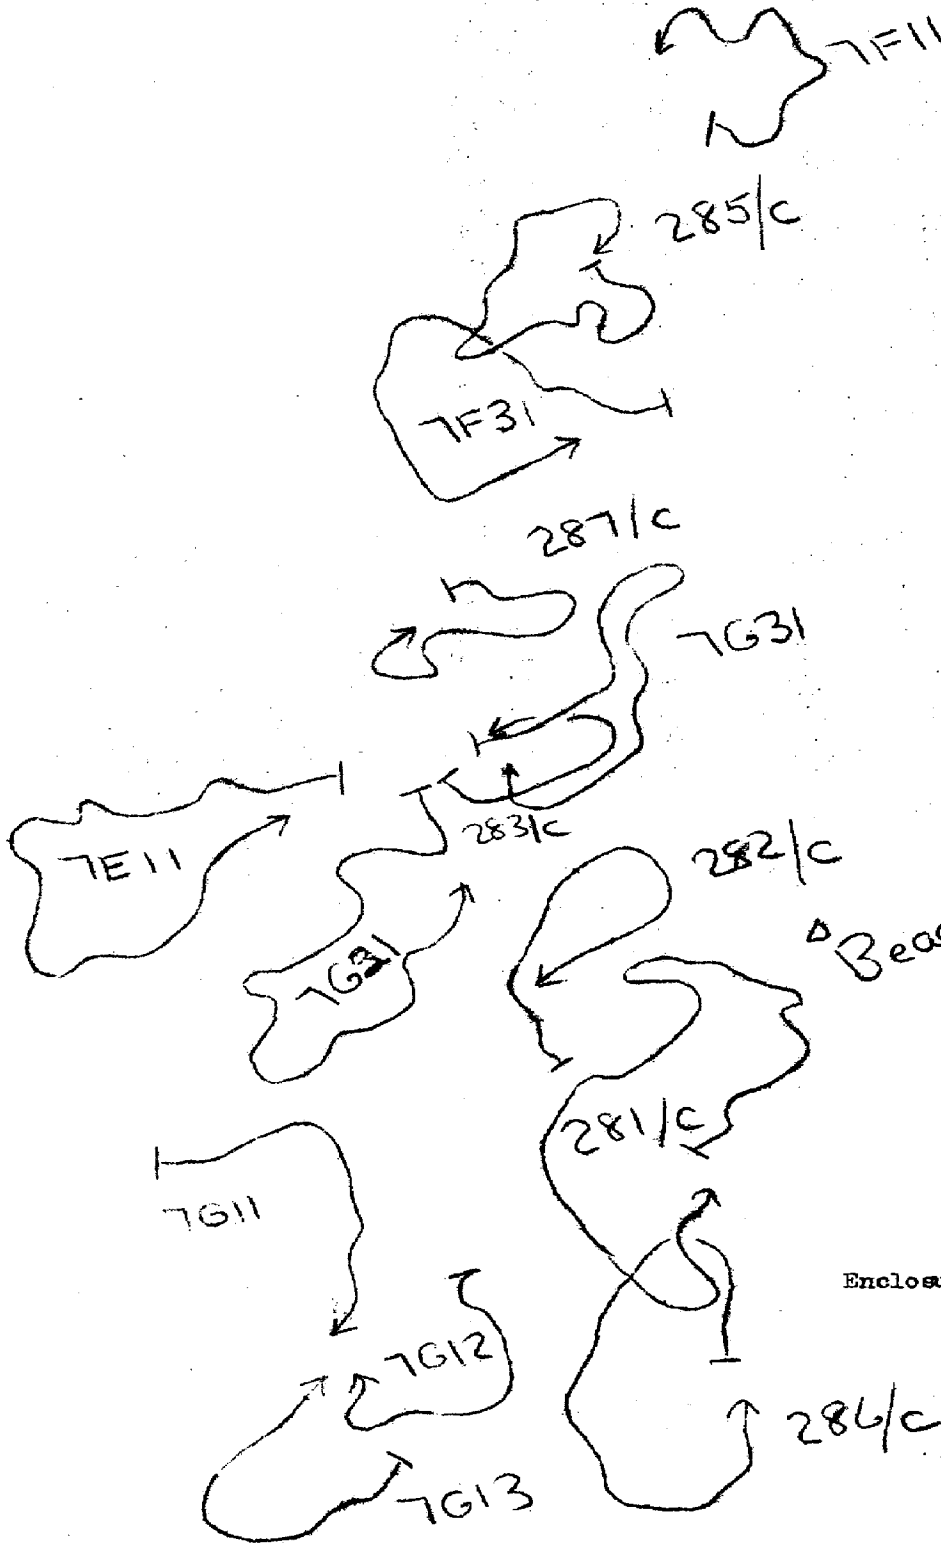 7F11
285/c
7F31
287/c
7G31
7E11
283/c
282/c
281/c
7G11
Enclosu
7G12
7G13